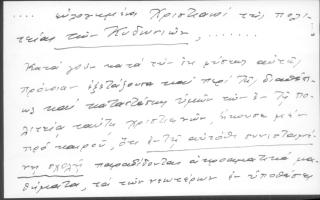 .... εὐλογημένοι Χριστιανοὶ τῆς πολι-
τείας τῶν Κυδωνιῶν, .......
Κατὰ γοῦν κατὰ τὴν ἐκ μέσης αὐτῆς
πρόνοιαν ἐξετάζουσα καὶ περὶ τῆς διαθέσε-
ως καὶ καταστάσεως ὑμῶν τῶν ἐν τῇ πο-
λιτείᾳ ταύτῃ χριστιανῶν, ἤκουσε μὲν
πρὸ καιροῦ, ὅτι ἐν τῇ αὐτόθι συνισταμέ-
νῃ σχολῇ παραδίδονται ἀκροαματικὰ μα-
θήματα, τὰ τῶν νεωτέρων ἐν ὑποθέσει